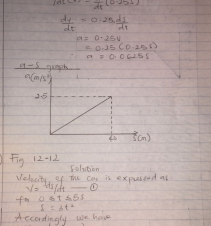 dv/dt = 0.25 ds/dt
a = 0.25v
= 0.25(0.25s)
a = 0.0625s
a-s graph
a(m/s²)
2.5
s(m)
Fig 12-12
Solution
Velocity of the car is expressed as
V = ds/dt — ①
for 0 ≤ t ≤ 5s
s = 3t²
Accordingly we have